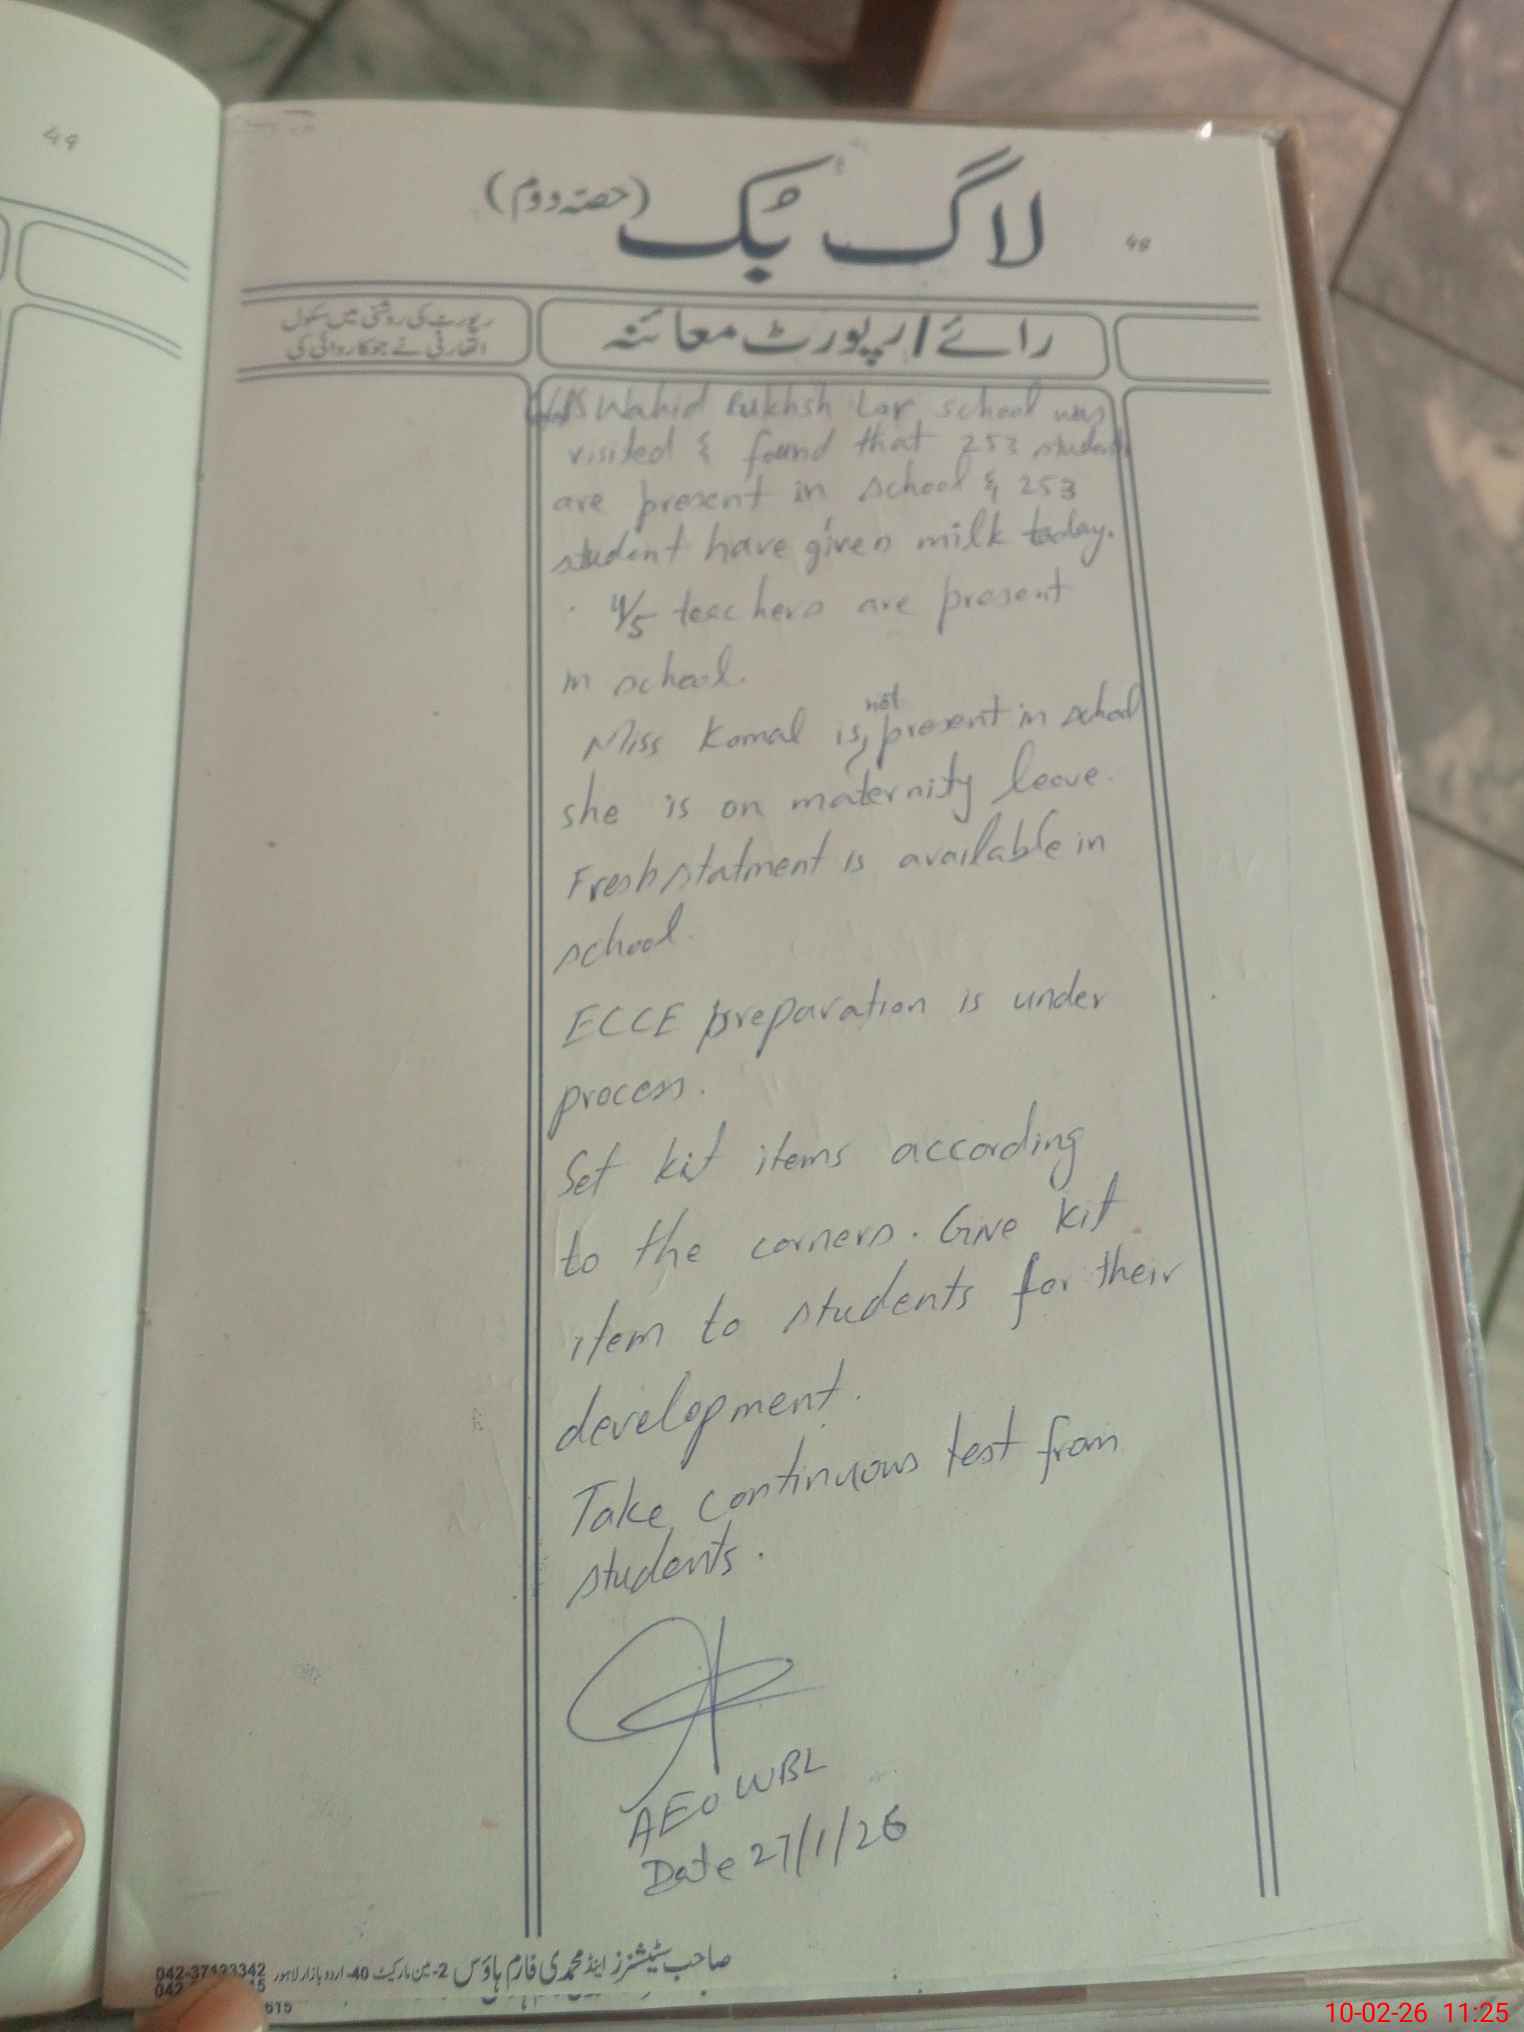 49
لاگ بُک (حصّہ دوم)
48
رائے / رپورٹ معائنہ
رپورٹ کی روشنی میں سکول
اتھارٹی نے جو کاروائی کی
Wahid Bukhsh Lar school was
visited & found that 253 students
are present in school & 253
student have given milk today.
4/5 teachers are present
in school.
Miss Komal is not present in school
she is on maternity leave.
Fresh statment is available in
school.
ECCE preparation is under
process.
Set kit items according
to the corners. Give kit
item to students for their
development.
Take continuous test from
students.
AEO WBL
Date 27/1/26
صاحب سٹیشنرز اینڈ محمدی فارم ہاؤس 2-مین مارکیٹ 40-اردو بازار لاہور
042-
042-
615
10-02-26 11:25